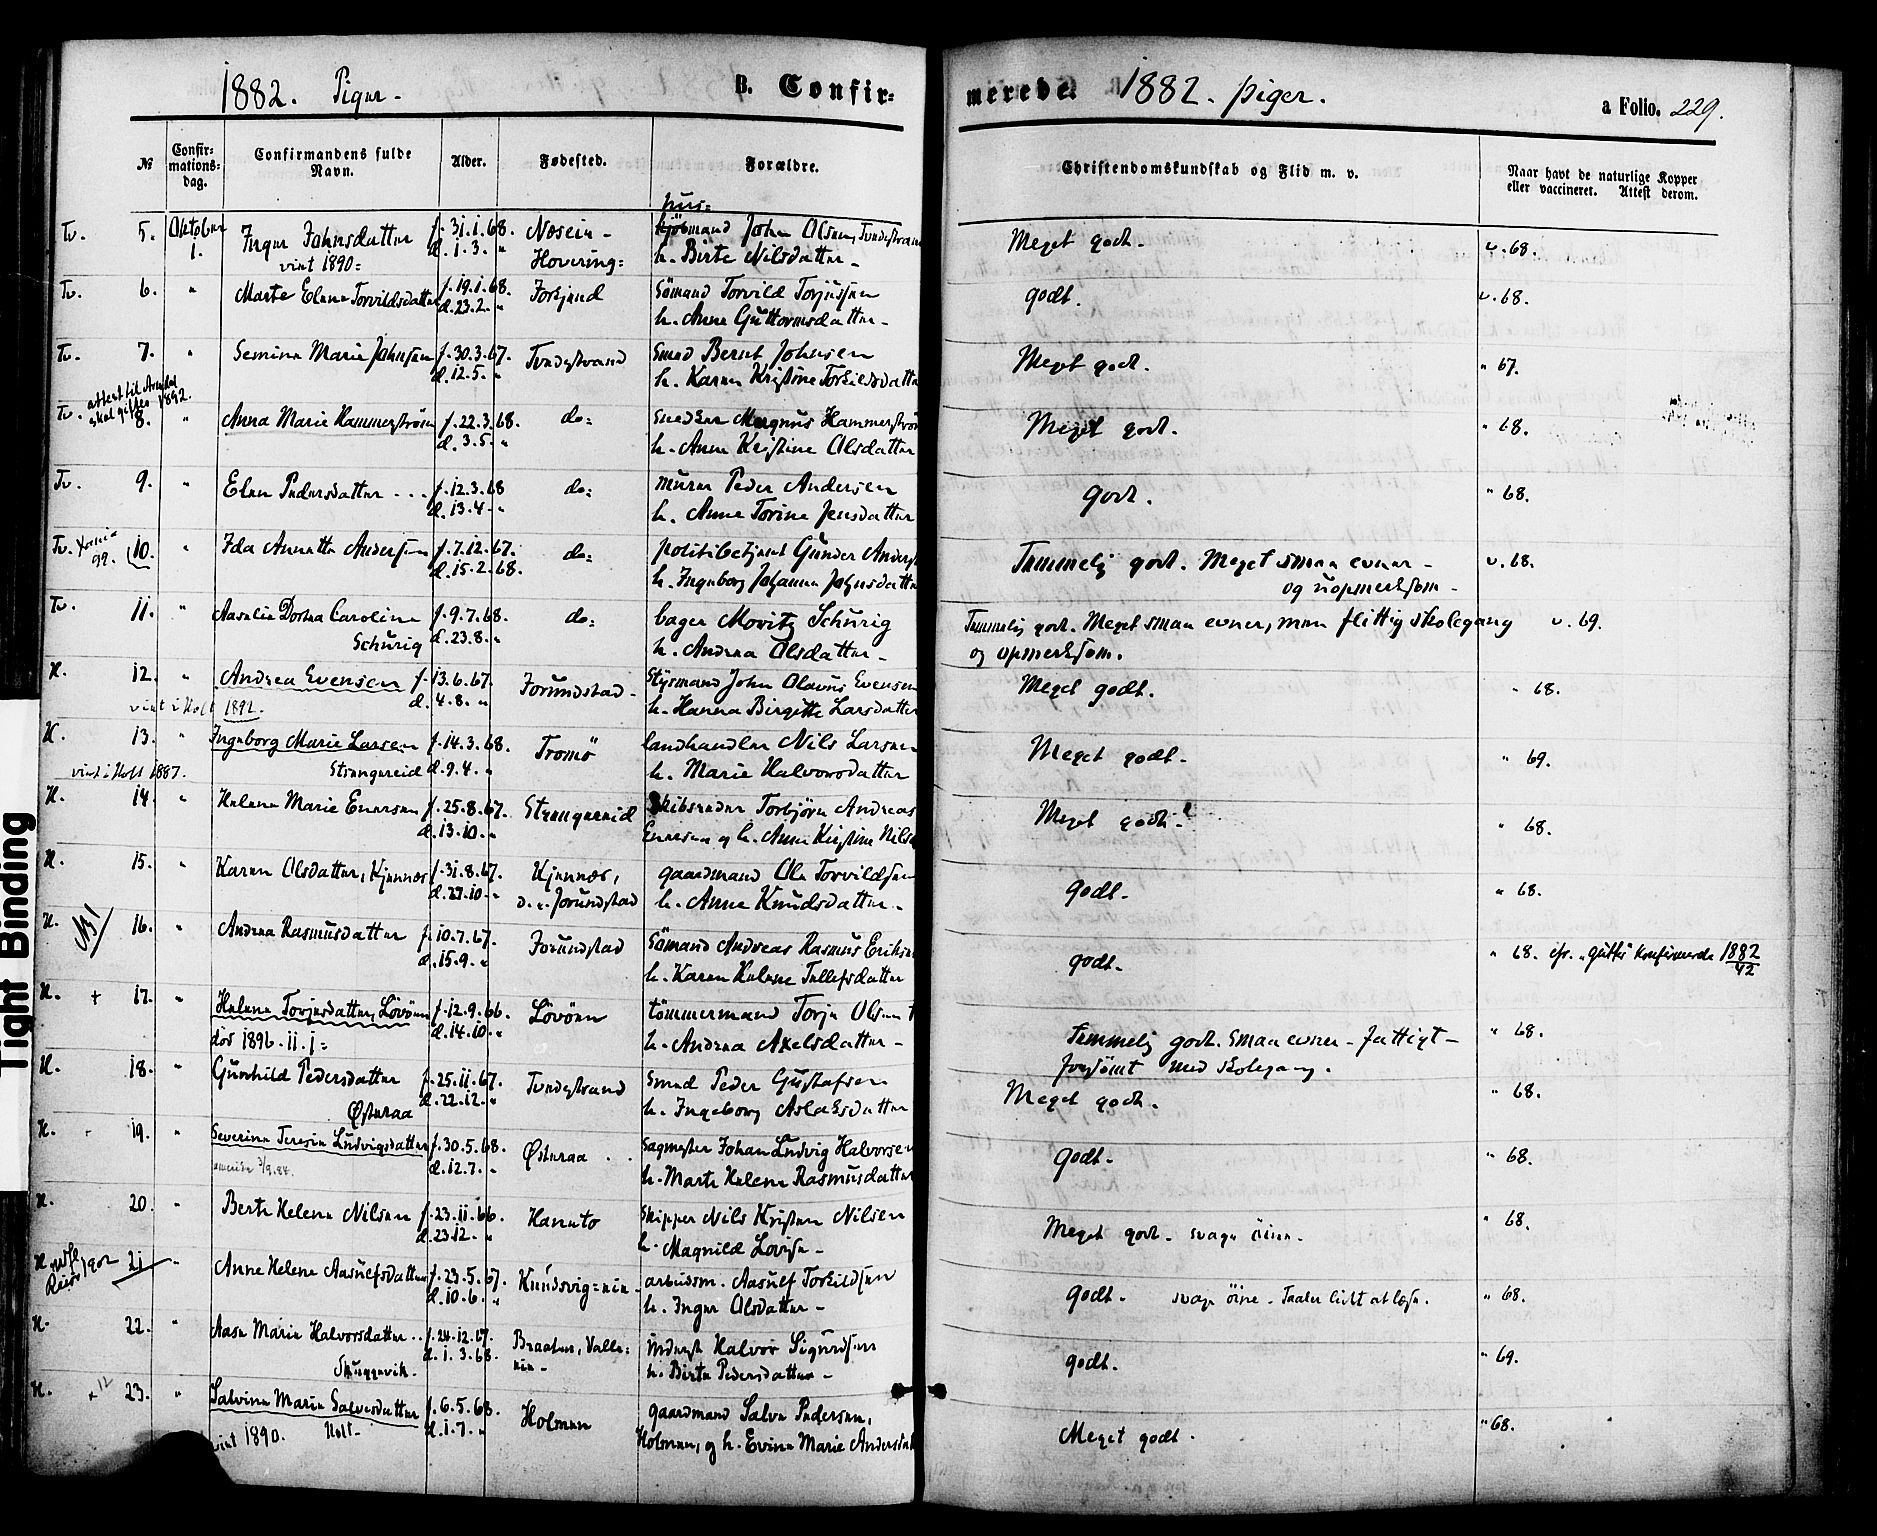 1882. Piger - B. Confir=
merede. 1882. piger. a Folio. 229.
№ Confir=mations=dag. Confirmandens fulde Navn. Alder. Fødested. Forældre. Christendomskundskab og Flid m. v. Naar havt de naturlige Kopper eller vaccineret. Attest derom.
Tv. 5. Oktober Inger Johnsdatter f. 31.1.68. Næseim - hus= kjöbmand John Olsen, Tvedestrand Meget godt. v. 68.
1. viet 1890= d. 1.3. " Hovering= h. Birte Nilsdatter -
Tv. 6. " Marte Elene Torvildsdatter f. 19.1.68. Forsjend Sömand Torvild Torjussen godt. v. 68.
d. 23.2. " h. Anne Guttormsdatter -
Tv. 7. " Semine Marie Johnsen f. 30.3.67. Tvedestrand Smed Bernt Johnsen Meget godt. " 67.
d. 12.5. " h. Karen Kristine Torkildsdatter
attest til Arendal
skal giftes 1892.
Tv. 8. " Anna Marie Hammerstrøm f. 22.3.68. do= Snedker Magnus Hammerstrøm Meget godt. " 68.
d. 3.5. " h. Anne Kristine Olsdatter
Tv. 9. " Elen Pedersdatter . . . f. 12.3.68 do= murer Peder Andersen Godt. " 68.
d. 13.4 - " h. Anne Torine Jensdatter
Tv. 99. 10. " Ida Annette Andersen f. 7.12.67. do= politibetjent Gunder Anders Temmelig godt. Meget smaa evner - v. 68.
d. 15.2.68. h. Ingeborg Johanne Johnsdatter og uopmerksom -
Tv. 11. " Aaselie Dorthea Caroline f. 9.7.68. do= bager Movitz Schurig Temmelig godt. Meget smaa evner, men flittig skolegang v. 69.
Schurig d. 23.8. " h. Andrea Olsdatter - og opmerksom.
H. 12. " Andrea Evensen f. 13.6.67. Jorundstad - Stÿrmand John Olavus Evensen Meget godt. " 68.
viet i Holt 1892. d. 4.8. " h. Hanna Birgitte Larsdatter
H. 13. " Ingeborg Marie Larsen f. 14.3.68. Tromö landhandler Nils Larsen Meget godt. " 69.
viet i Holt 1887. Strengereid d. 9.4. " h. Marie Halvorsdatter
H. 14. " Helene Marie Enersen f. 25.8.67. Strengereid Skibsreder Torbjörn Andreas Meget godt. " 68.
d. 13.10. " Enersen og h. Anne Kirstine Nils
H. 15. " Karen Olsdatter, Kjennæs f. 31.8.67. Kjennæs, gaardmand Ole Torvildsen godt. " 68.
d. 27.10. " o. . Jorundstad h. Anne Knudsdatter -
H. 16. " Andrea Rasmusdatter f. 10.7.67. Jorundstad Sömand Andreas Rasmus Eriksen godt. " 68. cfr. "gutter" konfirmerede 1882/42
d. 15.9. " h. Karen Helene Tellefsdatter
H. + 17. " Helene Torjesdatter, Lövöen f. 12.9.66. Lövöen tömmermand Torje Olsen Temmelig godt. Smaa evner - fattigt - " 68.
död 1896.11.1= d. 14.10. " h. Andrea Axelsdatter - forsömt med skolegang.
H. 18. " Gunhild Pedersdatter f. 25.11.67. Tvedestrand Smed Peder Gustafsen Meget godt. " 68.
Østeraa d. 22.12. " h. Ingeborg Aslaksdatter
H. 19. " Severine Teresia Ludvigsdatter f. 30.5.68. Østeraa . . Sagmester Johan Ludvig Halvorsen Godt. " 68.
d. 12.7. " h. Marte Helene Rasmusdatter
H. 20. " Berte Helene Nilsen f. 23.11.66. Haneto Skipper Nils Kristen Nilsen Meget godt. svage öine. " 68.
d. 23.12. " h. Magnild Lovise -
H. 1902 21. " Anne Helene Aasulfsdatter f. 23.5.67. Knudsvig=eie - arbeidsm. Aasulf Torkildsen godt. svage öine - Taaler lidt at læse. " 68.
d. 10.6. " h. Inger Olsdatter -
H. 22. " Aase Marie Halvorsdatter . . f. 24.12.67. Braaten, Valle= inderst Halvor Sigurdsen godt. " 69.
Skuggevik. d. 1.3.68. eie - h. Birte Pedersdatter -
H. 23. " Salvine Marie Salvesdatter f. 6.5.68. Holmen gaardmand Salve Pedersen, Meget godt. " 68.
viet 1890. Holt - d. 1.7. " Holmen, og h. Evine Marie Andersdat
Tight Binding